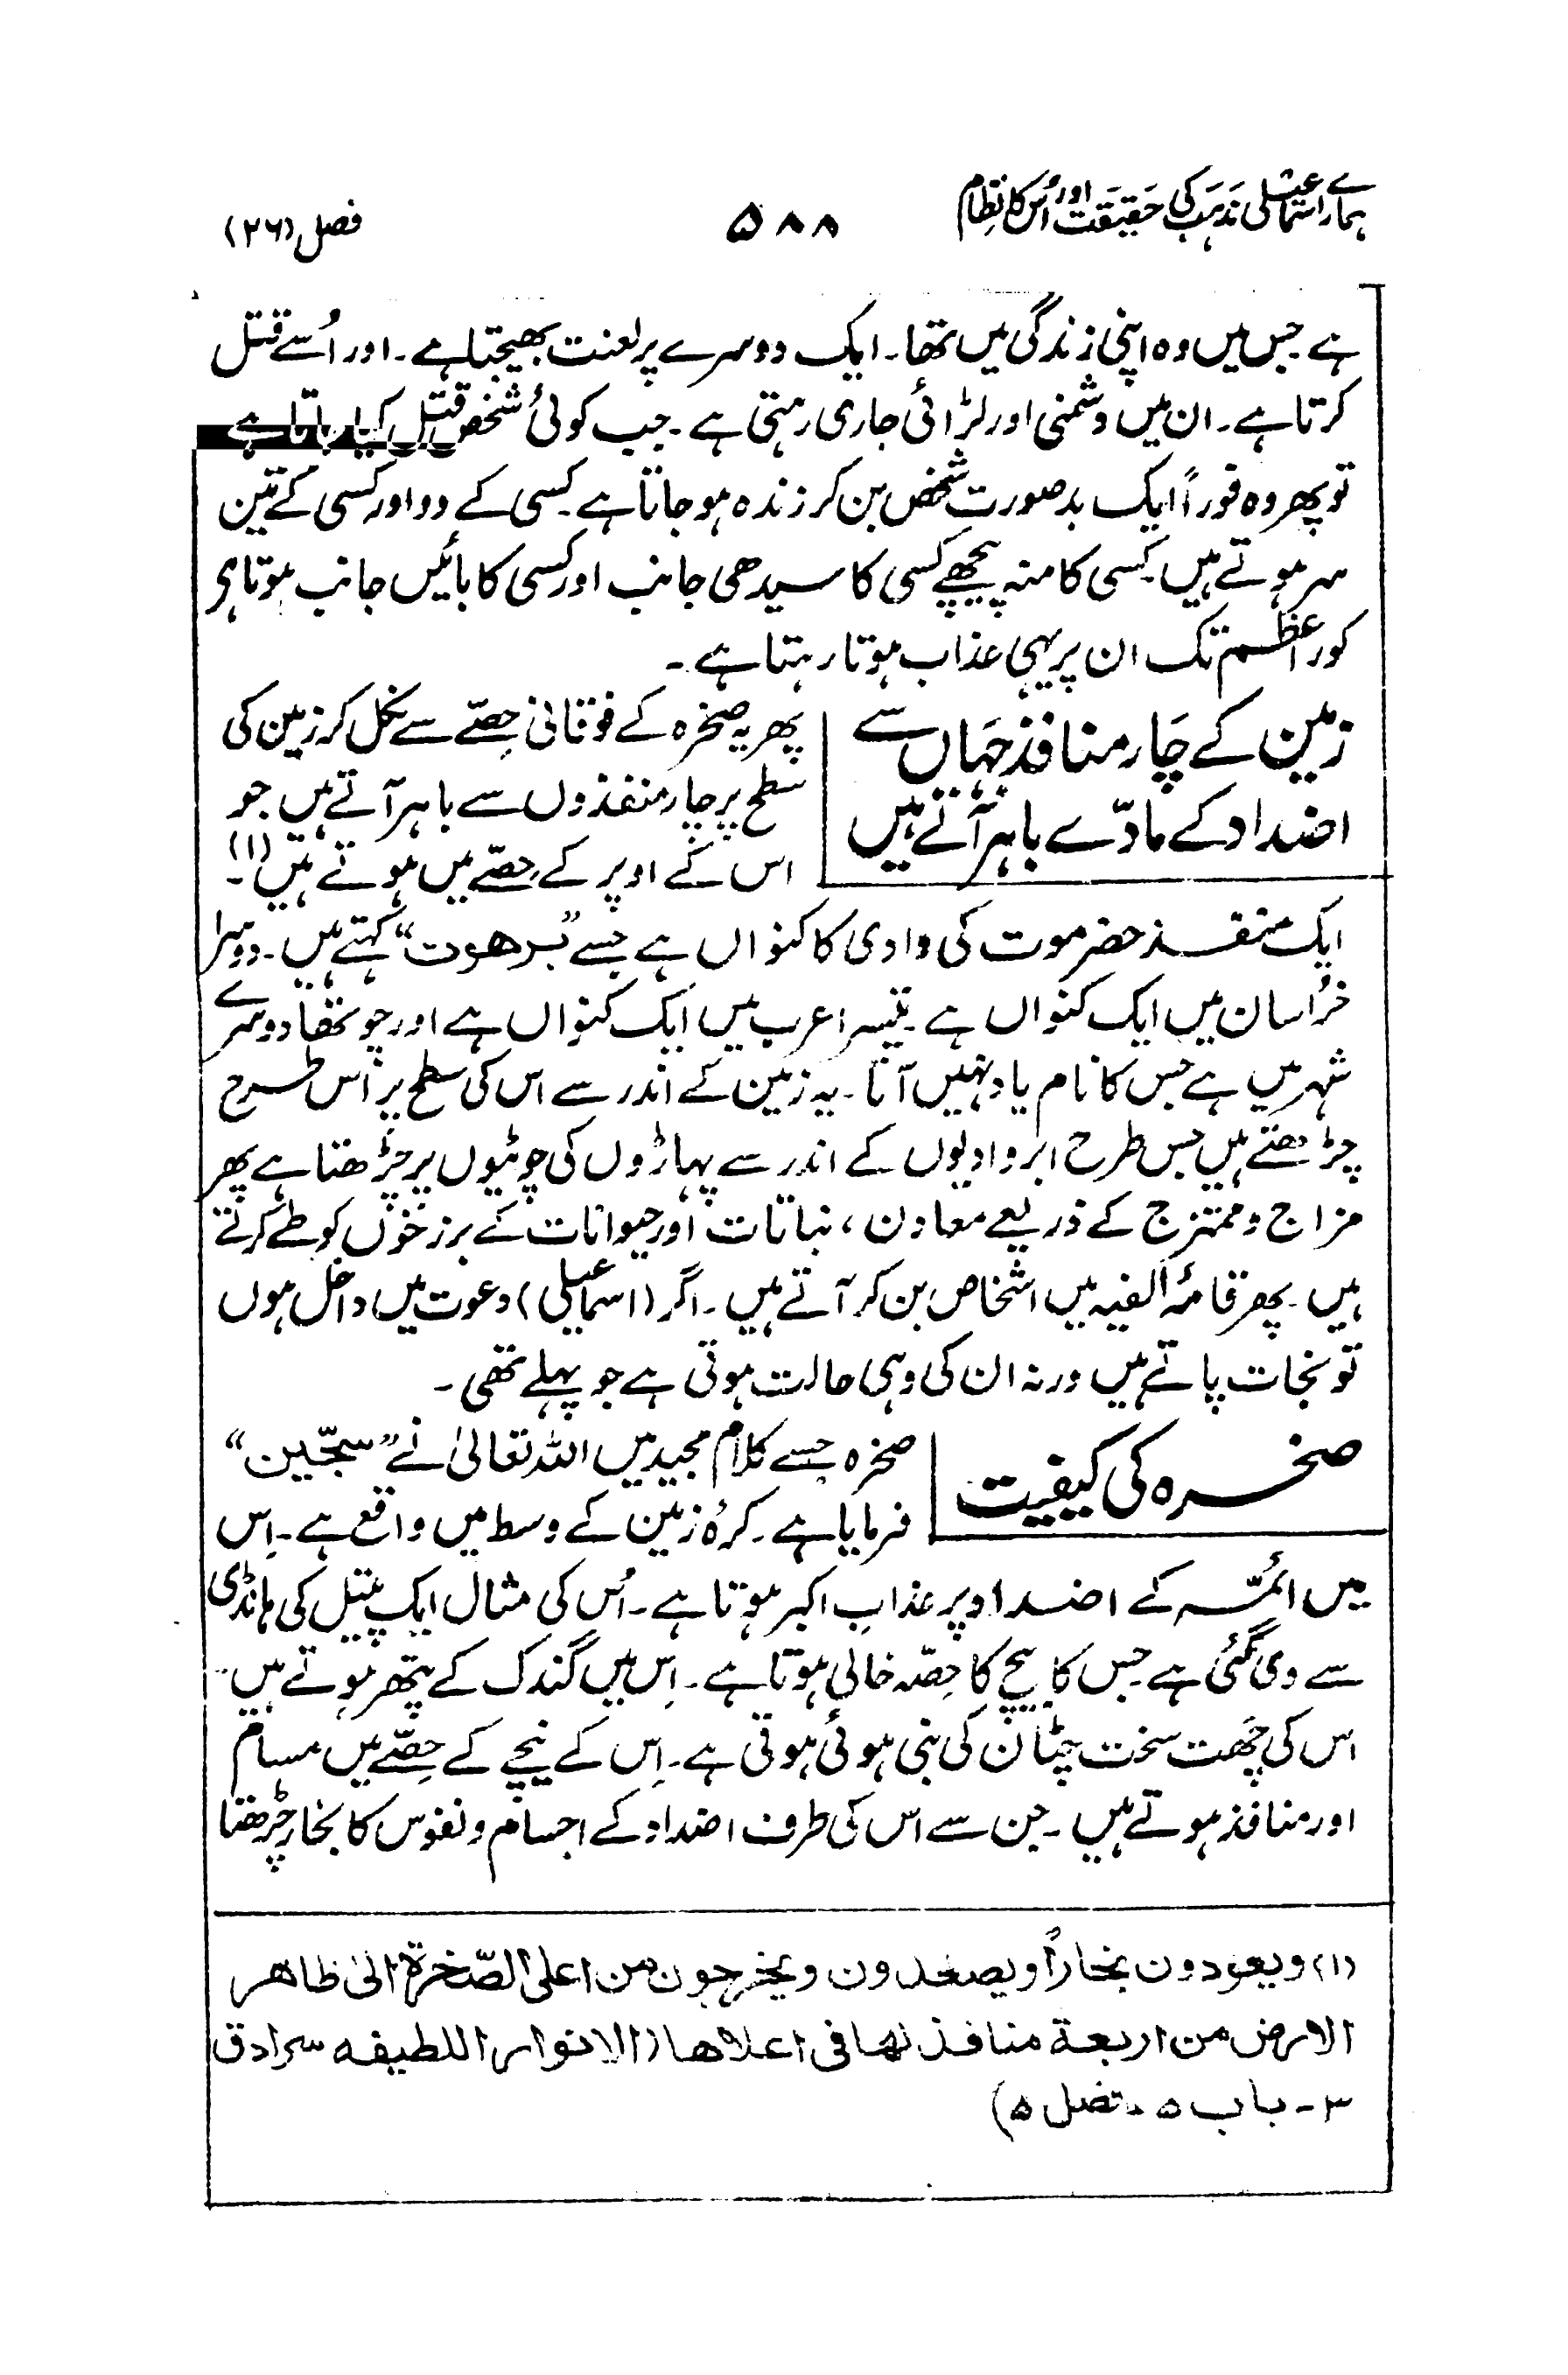 ہمارے اسماعیلی مذہب کی حقیقت اور اُس کا نظام
۵۸۸
فصل (۲۶)
ہے جس میں وہ اپنی زندگی میں تھا۔ ایک دوسرے پر لعنت بھیجتا ہے۔ اور اُسے قتل
کرتا ہے۔ ان میں دشمنی اور لڑائی جاری رہتی ہے۔ جب کوئی شخص قتل کیا جاتا ہے
تو پھر وہ فوراً ایک بدصورت شخص بن کر زندہ ہو جاتا ہے۔ کسی کے دو اور کسی کے تین
سر ہوتے ہیں۔ کسی کا منہ پیچھے کسی کا سیدھی جانب اور کسی کا بائیں جانب ہوتا ہی
کور اعظم تک ان پر یہی عذاب ہوتا رہتا ہے۔
زمین کے چَار منافذ جہَاں سے
اضداد کے مادّے باہر آتے ہیں
پھر یہ صخرہ کے فوقانی حِصّے سے نکل کر زمین کی
سطح پر چار منفذوں سے باہر آتے ہیں جو
اس کے اوپر کے حِصّے میں ہوتے ہیں (۱)۔
ایک منفذ حضر موت کی وادی کا کنواں ہے جسے ”برھوت“ کہتے ہیں۔ دوسرا
خُراسان میں ایک کنواں ہے۔ تیسرا عرب میں ایک کنواں ہے اور چوتھا دوسرے
شہر میں ہے جس کا نام یاد نہیں آتا۔ یہ زمین کے اندر سے اس کی سطح پر اس طرح
چڑھتے ہیں جس طرح ابر وادیوں کے اندر سے پہاڑوں کی چوٹیوں پر چڑھتا ہے پھر
مزاج و ممتزج کے ذریعے معادن، نباتات اور حیوانات کے برزخوں کو طے کرتے
ہیں۔ پھر قامۂ الفیہ میں اشخاص بن کر آتے ہیں۔ اگر (اسماعیلی) دعوت میں داخل ہوں
تو نجات پاتے ہیں ورنہ ان کی وہی حالت ہوتی ہے جو پہلے تھی۔
صخرہ کی کیفیت
صخرہ جسے کلام مجید میں اللہ تعالیٰ نے ”سجّین“
فرمایا ہے۔ کرۂ زمین کے وسط میں واقع ہے۔ اِس
میں ائمّہ کے اضداد پر عذابِ اکبر ہوتا ہے۔ اُس کی مثال ایک پیتل کی ہانڈی
سے دی گئی ہے جس کا بیچ کا حِصّہ خالی ہوتا ہے۔ اِس میں گندک کے پتھر ہوتے ہیں۔
اس کی چھَت سخت چٹان کی بنی ہوئی ہوتی ہے۔ اِس کے نیچے کے حِصّے میں مسام
اور منافذ ہوتے ہیں۔ جن سے اس کی طرف اضداد کے اجسام و نفوس کا بخار چڑھتا
(۱) ویعودون بخاراً ویصعدون ویخرجون من اعلی الصّخرة الیٰ ظاهر
الارض من اربعة منافذ لها فی اعلاها (الانوار اللطیفه سرادق
۳ ـ باب ۵ ۔ فصل ۵)